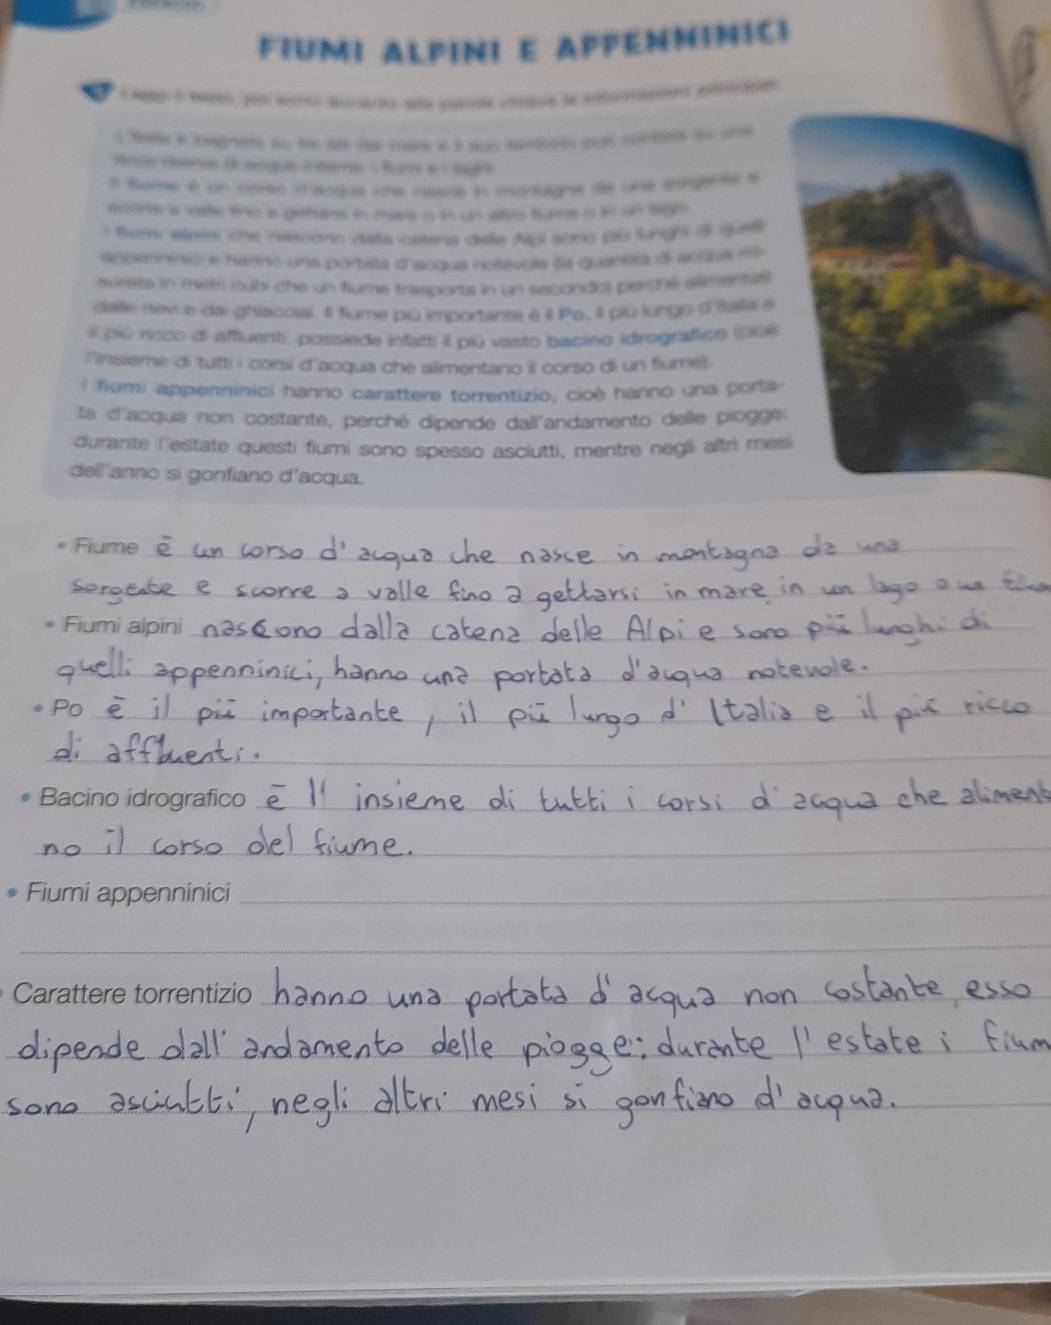 FIUMI ALPINI E APPENNINICI
scorre a valle fino a gettarsi in mare o in un altro fiume o in un lago.
I fiumi alpini che nascono dalla catena delle Alpi sono più lunghi di quelli
appenninici e hanno una portata d'acqua notevole (la quantità di acqua mi-
surata in metri cubi che un fiume trasporta in un secondo) perché alimentati
dalle nevi e dai ghiacciai. Il fiume più importante è il Po, il più lungo d'Italia e
il più ricco di affluenti: possiede infatti il più vasto bacino idrografico (cioè
l'insieme di tutti i corsi d'acqua che alimentano il corso di un fiume).
I fiumi appenninici hanno carattere torrentizio, cioè hanno una porta-
ta d'acqua non costante, perché dipende dall'andamento delle piogge:
durante l'estate questi fiumi sono spesso asciutti, mentre negli altri mesi
dell'anno si gonfiano d'acqua.
• Fiume è un corso d'acqua che nasce in montagna da una
sorgente e scorre a valle fino a gettarsi in mare, in un lago o un
• Fiumi alpini nascono dalla catena delle Alpi e sono più lunghi di
quelli appenninici, hanno una portata d'acqua notevole.
• Po è il più importante, il più lungo d'Italia e il più ricco
di affluenti.
• Bacino idrografico è l'insieme di tutti i corsi d'acqua che aliment
no il corso del fiume.
• Fiumi appenninici
Carattere torrentizio hanno una portata d'acqua non costante, esso
dipende dall'andamento delle piogge: durante l'estate i fium
sono asciutti, negli altri mesi si gonfiano d'acqua.